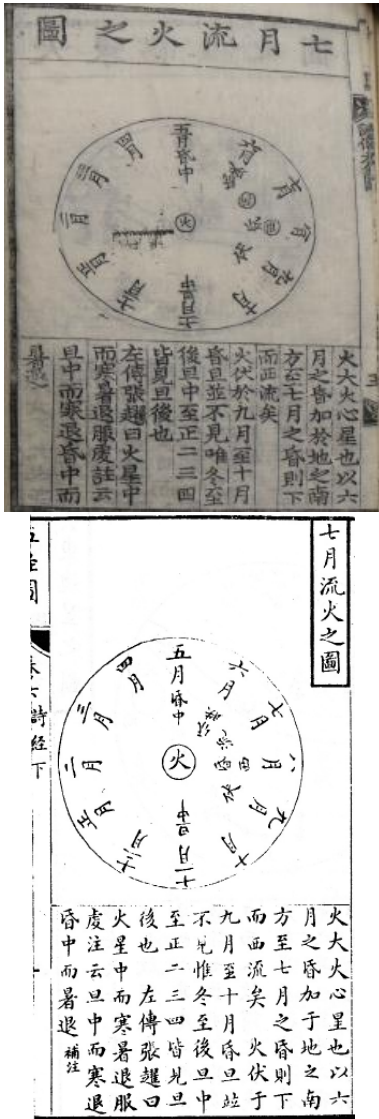 七月流火之圖
五月昏中
六月
七月
八月
九月
十月
十一月旦中
十二月
正月
二月
三月
四月
火
伏
火大火心星也以六
月之昏加於地之南
方至七月之昏則下
而西流矣
火伏於九月至十月
昏旦並不見唯冬至
後旦中至正二三四
皆見旦後也
左傳張趯曰火星中
而寒暑退服虔註云
旦中而寒退昏中而
暑退
七月流火之圖
五月昏中
六月
七月
八月
九月
十月
十一月旦中
十二月
正月
二月
三月
四月
火
西流
西
伏
火大火心星也以六
月之昏加于地之南
方至七月之昏則下
而西流矣 火伏于
九月至十月昏旦並
不見惟冬至後旦中
至正二三四皆見旦
後也 左傳張趯曰
火星中而寒暑退服
虔注云旦中而寒退
昏中而暑退 補注
五經圖
詩經下